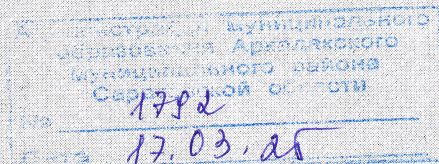 муниципального
образования Аркадакского
муниципального района
Саратовской области
№ 1792
Дата 17.03.25